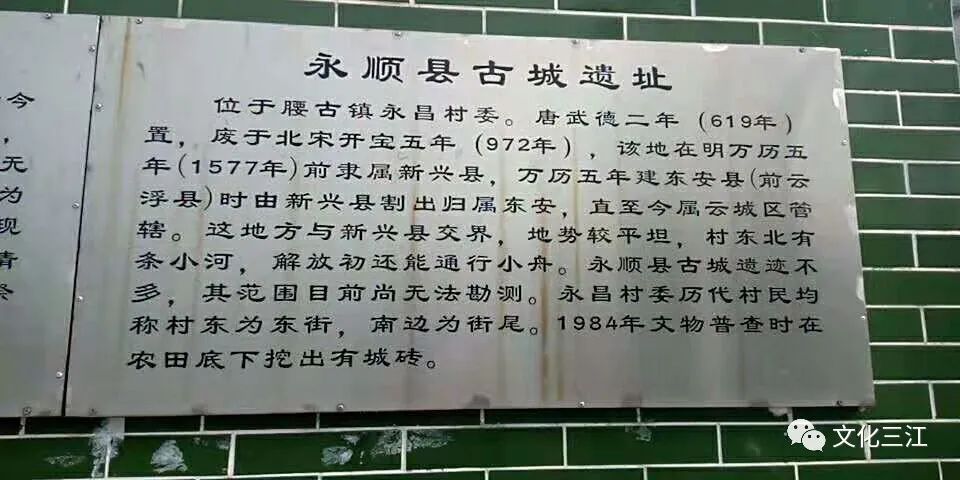 永顺县古城遗址
位于腰古镇永昌村委。唐武德二年（619年）
置，废于北宋开宝五年（972年），该地在明万历五
年(1577年)前隶属新兴县，万历五年建东安县(前云
浮县)时由新兴县割出归属东安，直至今属云城区管
辖。这地方与新兴县交界，地势较平坦，村东北有
条小河，解放初还能通行小舟。永顺县古城遗迹不
多，其范围目前尚无法勘测。永昌村委历代村民均
称村东为东街，南边为街尾。1984年文物普查时在
农田底下挖出有城砖。
今
，
无
为
现
文化三江